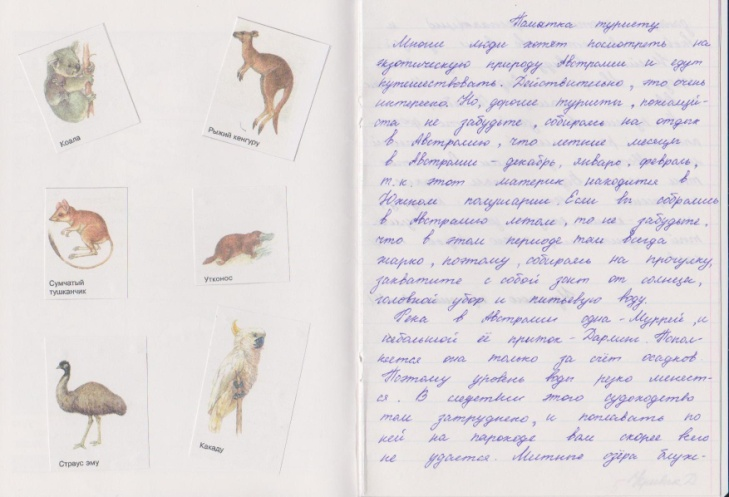 Коала
Рыжий кенгуру
Сумчатый
тушканчик
Утконос
Страус эму
Какаду
Памятка туристу
Многие люди хотят посмотреть на
экзотическую природу Австралии и едут
путешествовать. Действительно, это очень
интересно. Но, дорогие туристы, пожалуй-
ста не забудьте, собираясь на отдых
в Австралию, что летние месяцы
в Австралии - декабрь, январь, февраль,
т.к этот материк находится в
Южном полушарии. Если вы собрались
в Австралию летом, то не забудьте,
что в этом периоде там всегда
жарко, поэтому, собираясь на прогулку,
захватите с собой зонт от солнца,
головной убор и питьевую воду.
Река в Австралии одна - Муррей, и
небольшой её приток - Дарлинг. Попол-
няется она только за счёт осадков.
Поэтому уровень воды резко меняет-
ся. В следствии этого судоходство
там затруднено, и поплавать по
ней на пароходе вам скорее всего
не удастся. Мутного озёра ближ-